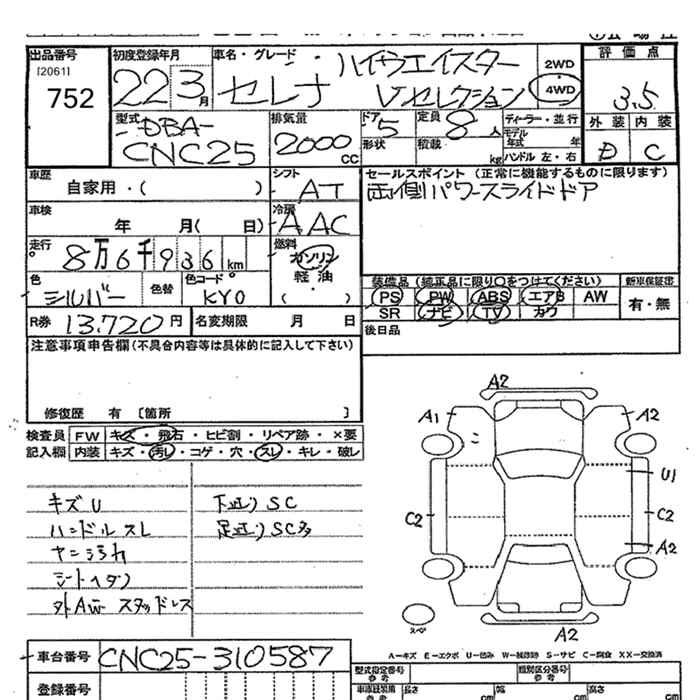 出品番号 初度登録年月 車名・グレード 2WD 評価点
[2061] 752 22 3月 セレナ ハイウエイスター Vセレクション 4WD 3.5
型式 DBA-CNC25 排気量 2000cc ドア 5 定員 8人 ディーラー・並行 外装 内装
形状 積載 kg モデル年式 年 D C
ハンドル 左・右
車歴 自家用・( ) シフト AT セールスポイント(正常に機能するものに限ります)
両側パワースライドドア
車検 年 月( 日) 冷房 AAC
走行 8万6千936km 燃料 ガソリン 軽油 ( )
色 シルバー 色替 色コード KY0
装備品(純正品に限り○をつけてください) 新車保証書
PS PW ABS エアB AW 有・無
SR ナビ TV カワ
R券 13,720円 名変期限 月 日 後日品
注意事項申告欄(不具合内容等は具体的に記入して下さい)
修復歴 有 [箇所 ]
検査員 FW キズ・飛石・ヒビ割・リペア跡・×要
記入欄 内装 キズ・汚レ・コゲ・穴・スレ・キレ・破レ
キズU 下廻りSC
ハンドルスレ 足廻りSC多
ヤニ汚れ
シートヘタリ
外AW スタッドレス
A2
A1 A2
U1
C2 C2
A2
スペア
A2
A-キズ E-エクボ U-凹み W-補修跡 S-サビ C-腐食 XX-交換済
車台番号 CNC25-310587
型式指定番号 参考 類別区分番号 参考
登録番号 長さ cm 幅 cm 高さ cm